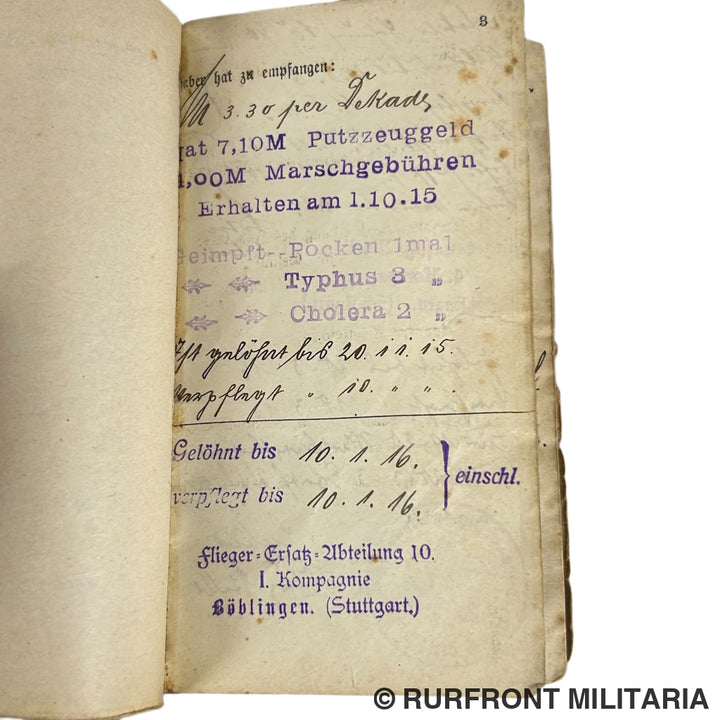 3
haber hat zu empfangen:
M 3.30 per Dekade
hat 7,10M Putzzeuggeld
1,00M Marschgebühren
Erhalten am 1.10.15
Geimpft--Pocken 1mal
Typhus 3 „
Cholera 2 „
Ist gelöhnt bis 20.11.15.
Verpflegt „ 10. „ „ .
Gelöhnt bis 10. 1. 16.
verpflegt bis 10. 1. 16.
} einschl.
Flieger-Ersatz-Abteilung 10.
I. Kompagnie
Böblingen. (Stuttgart.)
© RURFRONT MILITARIA